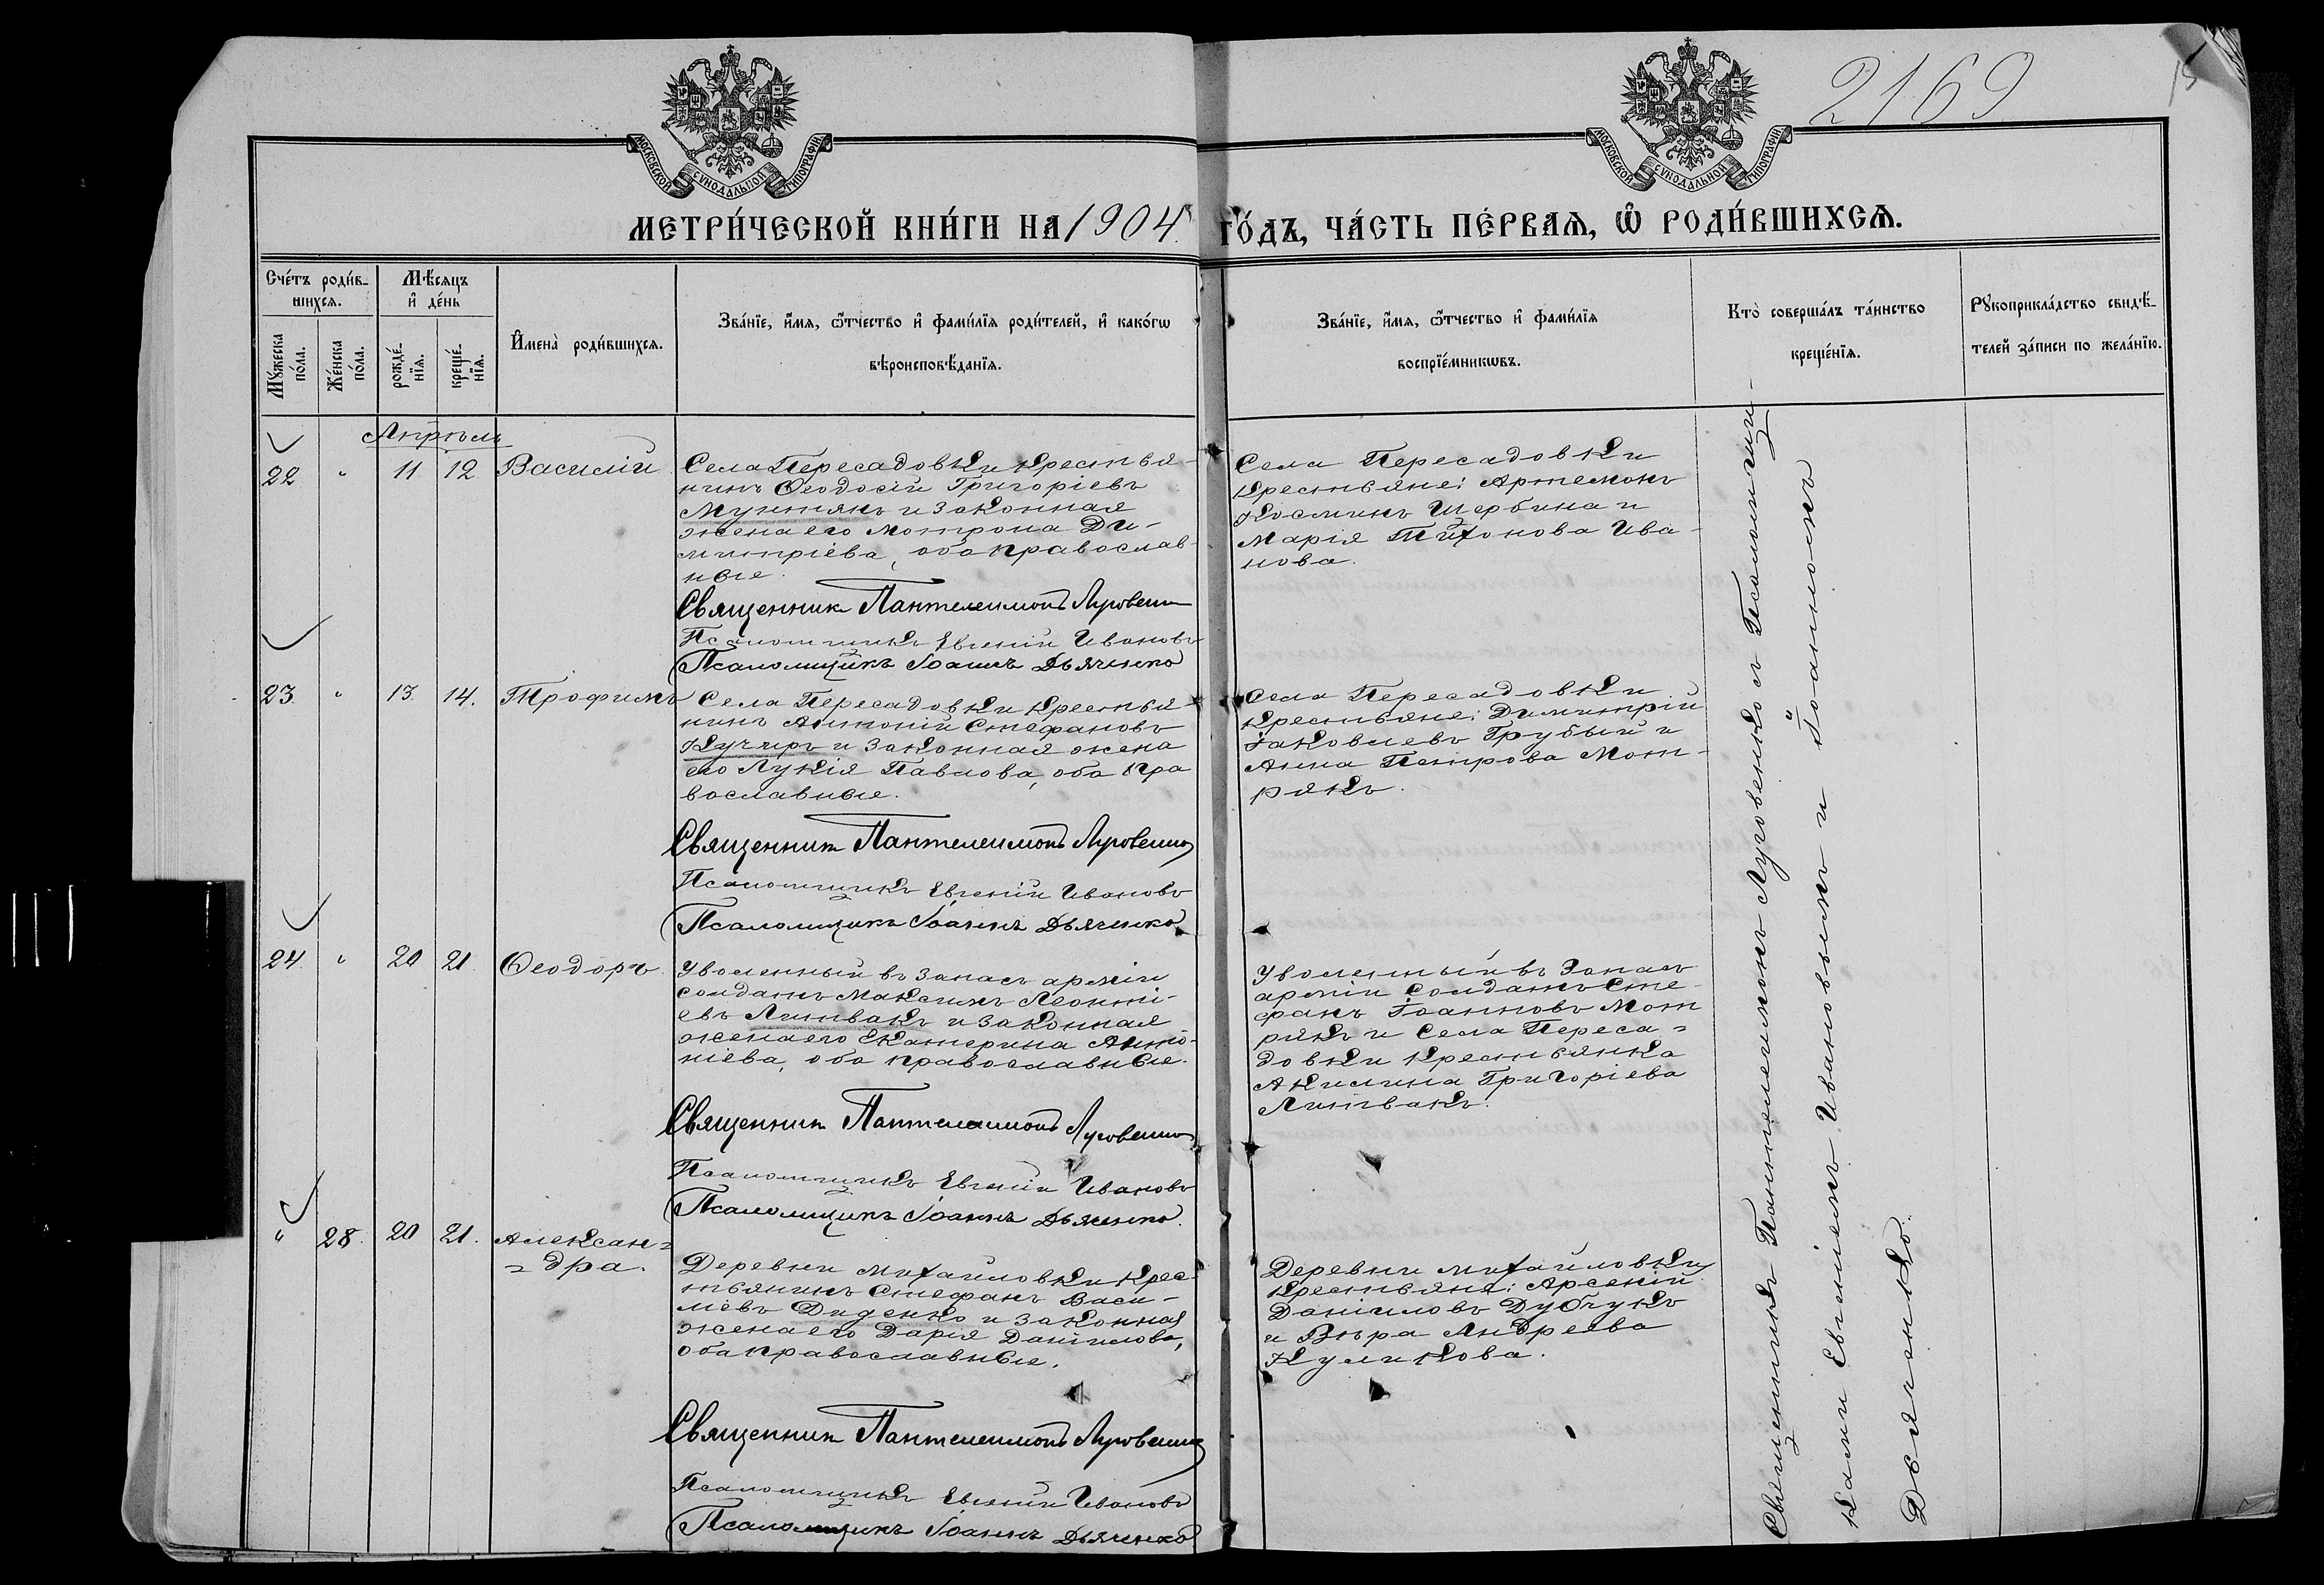 2169
15
МОСКОВСКОЙ СѴНОДАЛЬНОЙ ТИПОГРАФІИ
МОСКОВСКОЙ СѴНОДАЛЬНОЙ ТИПОГРАФІИ
МЕТРИ́ЧЕСКОЙ КНИ́ГИ НА 1904 ГО́ДЪ, ЧА́СТЬ ПЕ́РВАЯ, Ѿ РОДИ́ВШИХСѦ.
Сче́тъ роди́в-
шихся.
Мꙋ́жеска по́ла.
Же́нска по́ла.
Мѣ́сяцъ
и҆ де́нь
рожде́-
нїя.
креще́-
нїя.
И҆мена̀ роди́вшихся.
Зва́нїе, и҆́мя, ѻ҆́тчество и҆ фами́лїя роди́телей, и҆ како́гѡ
вѣроисповѣ́данїя.
Зва́нїе, и҆́мя, ѻ҆́тчество и҆ фами́лїя
воспрїе́мникѡвъ.
Кто̀ соверша́лъ та́инство
креще́нїя.
Рꙋкоприкла́дство свидѣ́-
телей за́писи по жела́нїю.
Апрѣль
22 " 11 12 Василій
Села Пересадовки крестья-
нинъ Ѳеодосій Григоріевъ
Мунтянъ и законная
жена его Мотрона Ди-
митріева, оба православ-
ные.
Священникъ Пантелеимонъ Луговенко
Псаломщикъ Евгеній Ивановъ
Псаломщикъ Іоаннъ Дьяченко
Села Пересадовки
крестьяне: Артемонъ
Косминъ Щербина и
Марія Тихонова Ива-
нова.
23 " 13 14. Трофимъ
Села Пересадовки крестья-
нинъ Антоній Стефановъ
Кучеръ и законная жена
его Лукія Павлова, оба пра
вославные.
Священникъ Пантелеимонъ Луговенко
Псаломщикъ Евгеній Ивановъ
Псаломщикъ Іоаннъ Дьяченко
Села Пересадовки
крестьяне: Димитрій
Іаковлевъ Грубый и
Анна Петрова Мот-
рякъ.
24 " 20 21 Ѳеодоръ
Уволенный въ запасъ арміи
солдатъ Максимъ Леонті-
евъ Литвакъ и законная
жена его Екатерина Анто-
ніева, оба православные.
Священникъ Пантелеимонъ Луговенко
Псаломщикъ Евгеній Ивановъ
Псаломщикъ Іоаннъ Дьяченко.
Уволенный въ запасъ
арміи солдатъ Сте-
фанъ Іоанновъ Мот
рякъ и села Переса-
довки крестьянка
Акилина Григоріева
Литвакъ.
" 28 20 21. Алексан-
-дра.
Деревни Михайловки крес-
тьянинъ Стефанъ Васи-
ліевъ Диденко и законная
жена его Дарія Даніилова,
оба православные.
Священникъ Пантелеимонъ Луговенко
Псаломщикъ Евгеній Ивановъ
Псаломщикъ Іоаннъ Дьяченко
Деревни Михайловки
крестьяне: Арсеній
Даніиловъ Дубчукъ
и Вѣра Андреева
Куликова.
Священникъ Пантелеимонъ Луговенко съ Псаломщи-
ками Евгеніемъ Ивановымъ и Іоанномъ
Дьяченко.